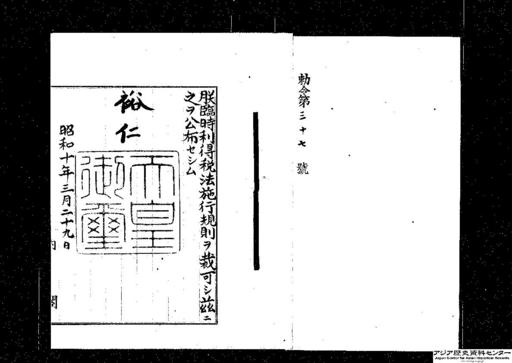 勅令第三十七號
朕臨時利得税法施行規則ヲ裁可シ茲ニ
之ヲ公布セシム
裕仁
天皇
御璽
昭和十年三月二十九日
内閣
アジア歴史資料センター
Japan Center for Asian Historical Records